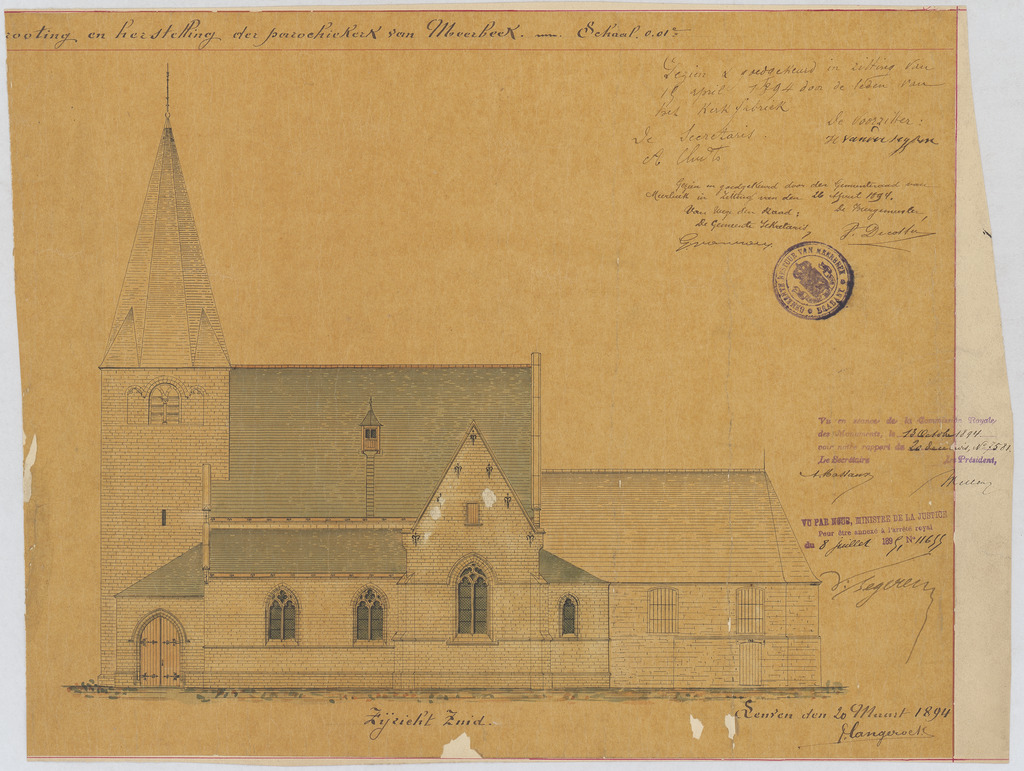 rooting en herstelling der parochiekerk van Meerbeek. Schaal. 0.01
Gezien & goedgekeurd in zitting van
19 april 1894 door de leden van
het Kerkfabriek
De Secretaris. De Voorzitter:
Gezien en goedgekeurd door den Gemeenteraad van
Meerbeek in Zitting van den 26 April 1894.
Van Wege den Raad; De Burgemeester,
De Gemeente Sekretaris,
GEMEENTE BESTUUR VAN MEERBEEK
Vu en séance de la Commission Royale
des Monuments, le 13 Octobre 1894
voir notre rapport du
Le Secrétaire Le Président,
VU PAR NOUS, MINISTRE DE LA JUSTICE
Pour être annexé à l'arrêté royal
du 8 juillet 1895 N° 11655
Zijzicht Zuid.
Leuven den 20 Maart 1894
Langerock